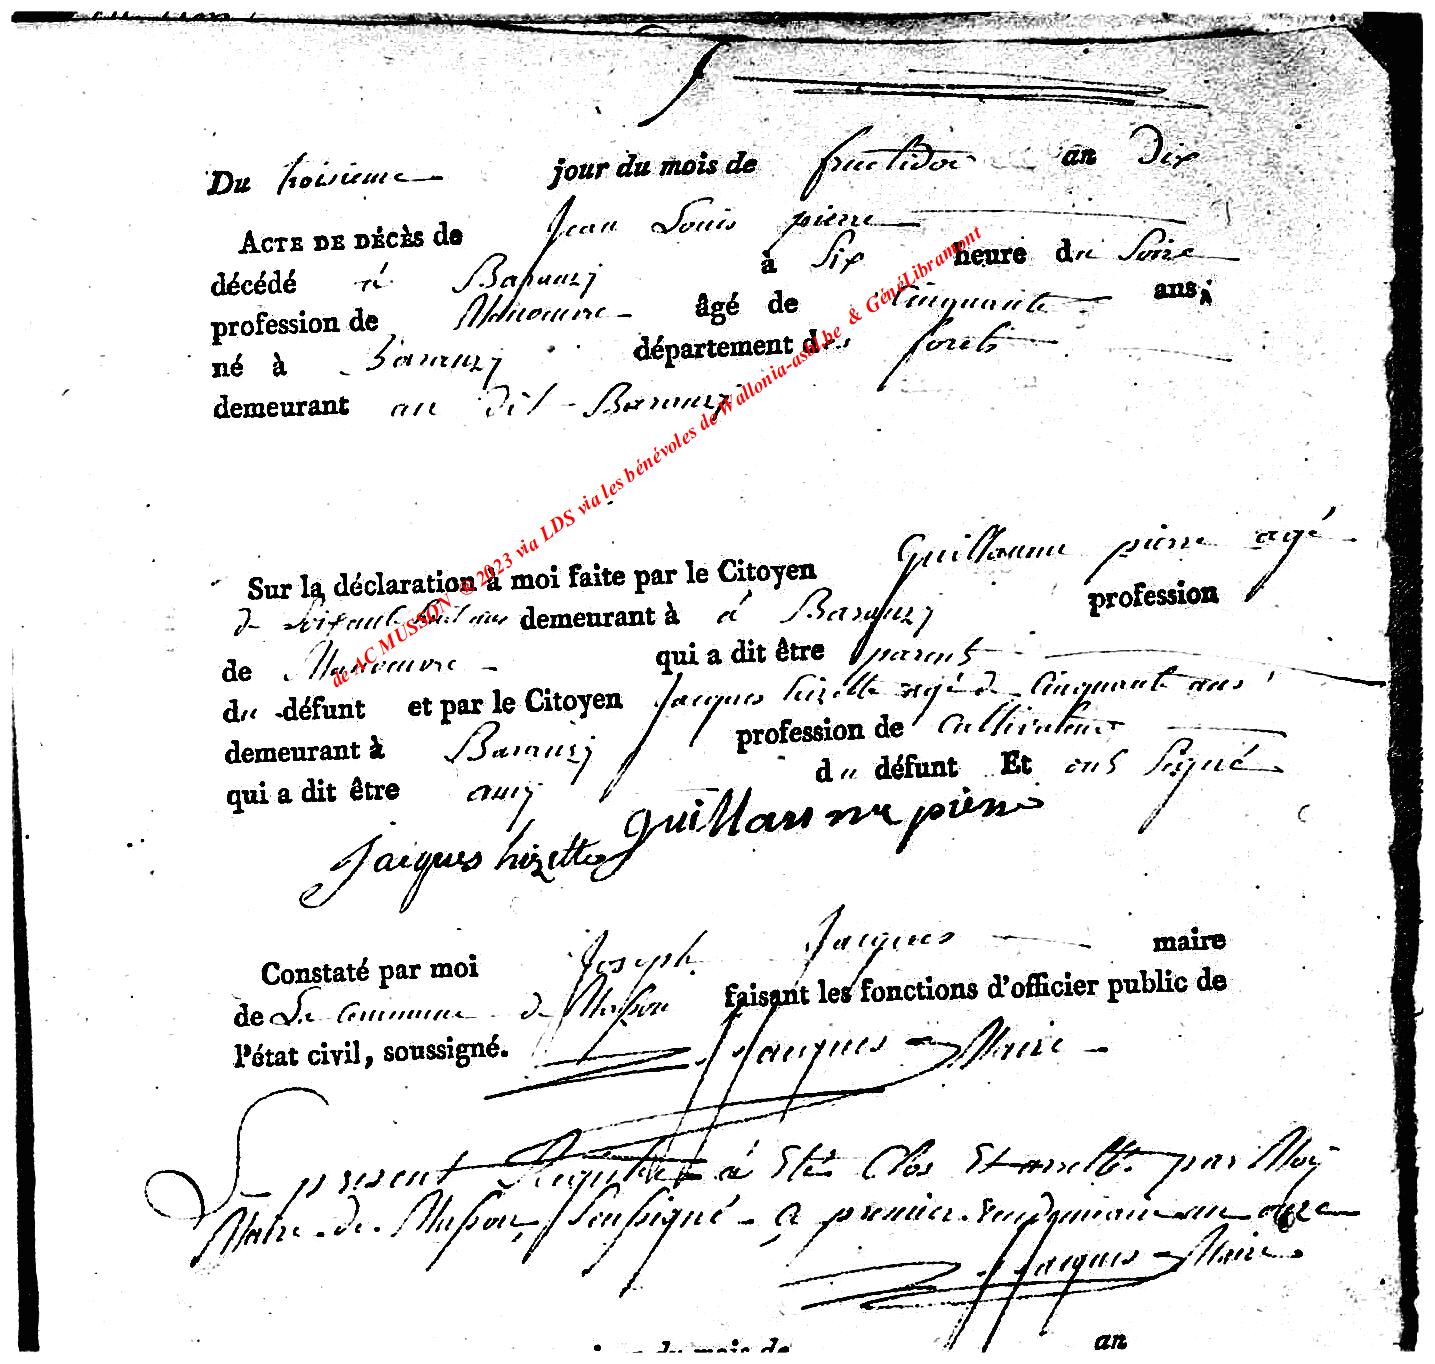 Du troisieme jour du mois de fructidor an Dix
ACTE DE DÉCÈS de Jean Louis pierre
décédé à Baranzy à Six heure du Soire
profession de Manoeuvre âgé de Cinquante ans,
né à Baranzy département des forets
demeurant au dit Baranzy
Sur la déclaration à moi faite par le Citoyen Guillaume pierre agé
de Soixante ans demeurant à á Baranzy profession
de Manoeuvre qui a dit être parent
du défunt et par le Citoyen Jacques hizette agé de Cinquante ans
demeurant à Baranzy profession de Cultivateur
qui a dit être amy du défunt Et ont Signé
Guillaume pierre
Jacques hizette
Constaté par moi Joseph Jacques maire
de La Commune de Musson faisant les fonctions d'officier public de
l'état civil, soussigné. J Jacques Maire
Le present Registre á Eté Clos Et arretté par Moy
Maire de Musson Soussigné Ce premier Vendemiaire an onze
J Jacques Maire
jour du mois de an
de AC MUSSON © 2023 via LDS via les bénévoles de Wallonia-asbl.be & GénéLibramont